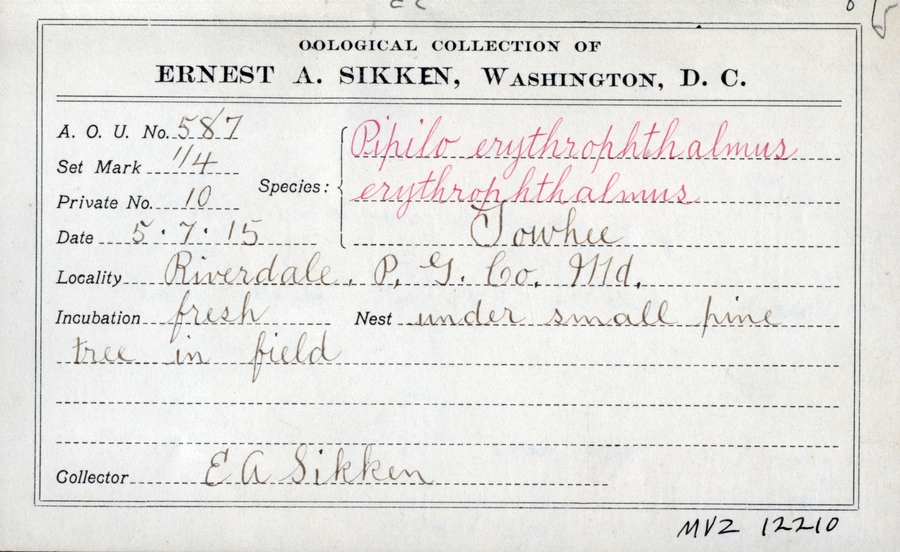 OOLOGICAL COLLECTION OF
ERNEST A. SIKKEN, WASHINGTON, D. C.
A. O. U. No. 587
Set Mark 1/4
Private No. 10
Date 5.7.15
Species: Pipilo erythrophthalmus
erythrophthalmus
Towhee
Locality Riverdale, P. G. Co. Md.
Incubation fresh Nest under small pine
tree in field
Collector E A Sikken
MVZ 12210